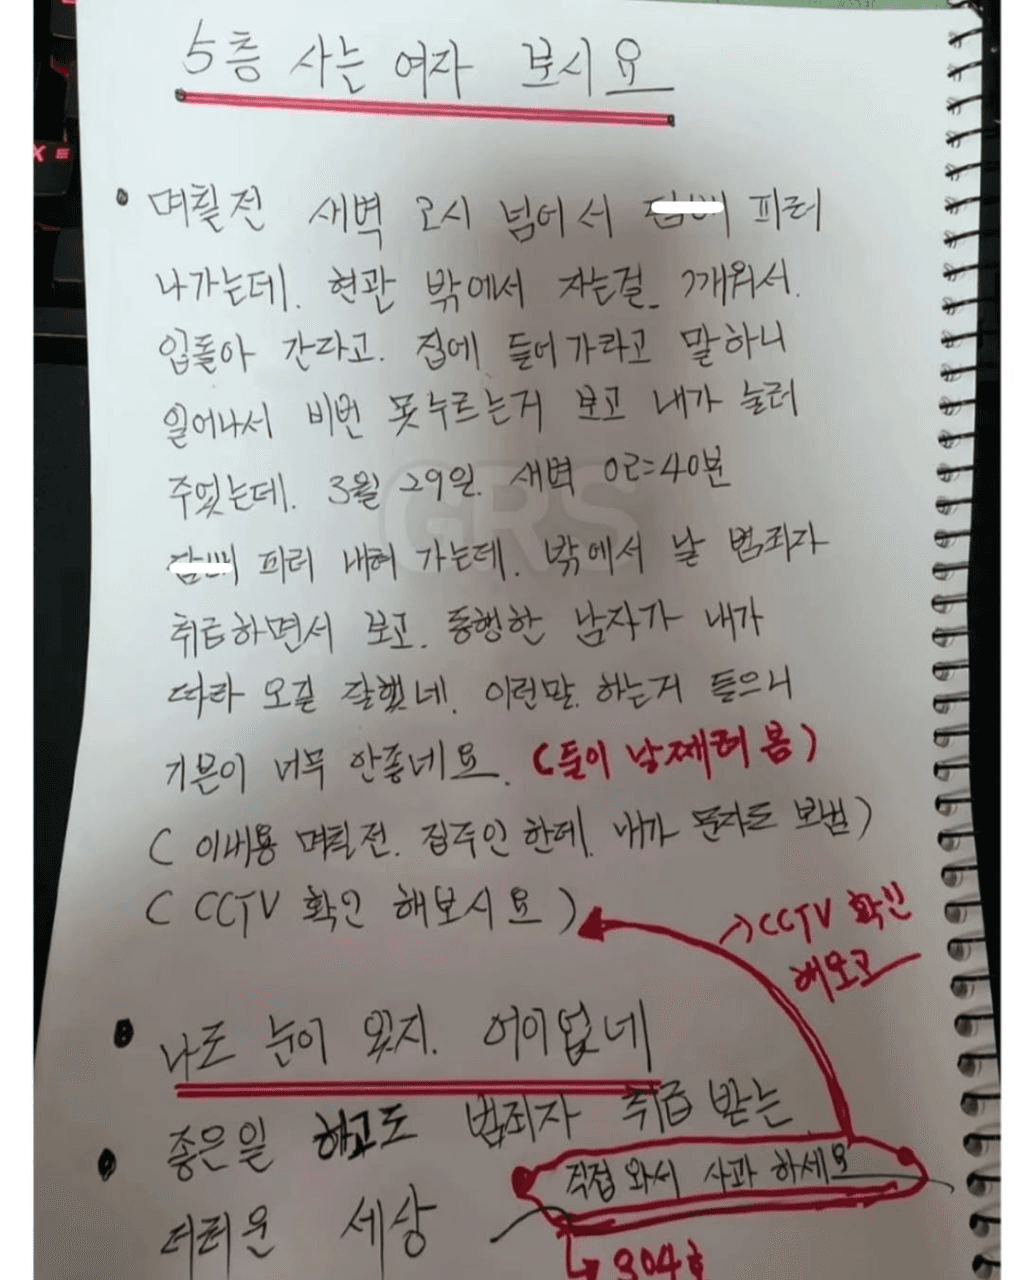 5층 사는 여자 보시요
• 며칠전 새벽 2시 넘어서 담배 피러
나가는데. 현관 밖에서 자는걸 깨워서.
입돌아 간다고. 집에 들어가라고 말하니
일어나서 비번 못누르는거 보고 내가 눌러
주었는데. 3월 29일. 새벽 02=40분
담배 피러 내려 가는데. 밖에서 날 범죄자
취급하면서 보고. 동행한 남자가 내가
따라 오길 잘했네. 이런말. 하는거 들으니
기분이 너무 안좋네요. (둘이 날째려 봄)
( 이내용 며칠전. 집주인 한테. 내가 문자도 보냄)
( CCTV 확인 해보시요 )
→ CCTV 확인
해보고
• 나도 눈이 있지. 어이없네
• 좋은일 하고도 범죄자 취급 받는
더러운 세상
직접 와서 사과 하세요
→ 304호
GRS